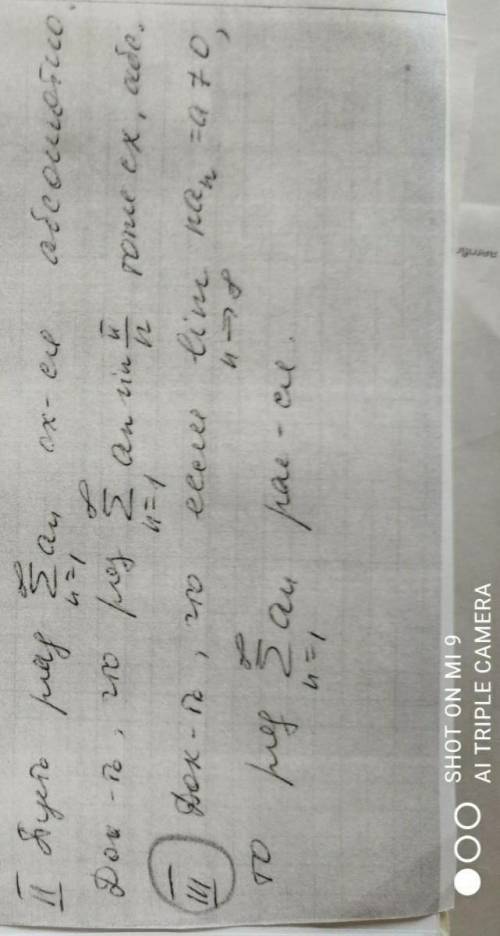 II Пусть ряд ∞∑n=1 an сх-ся абсолютно.
Док-ть, что ряд ∞∑n=1 an sin π/n тоже сх. абс.
III Док-ть, что если lim n→∞ nan = a ≠ 0,
то ряд ∞∑n=1 an рас-ся.
SHOT ON MI 9
AI TRIPLE CAMERA